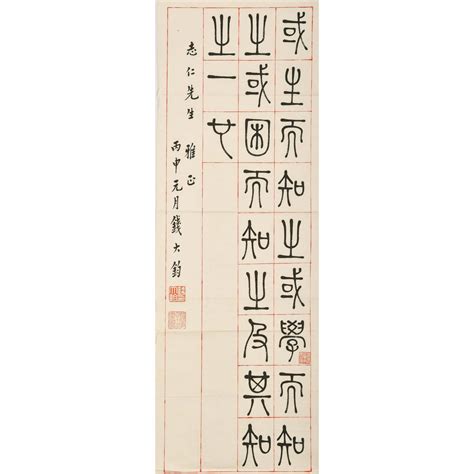 或生而知之或學而知
之或困而知之及其知
之一也
志仁先生 雅正
丙申元月錢大鈞